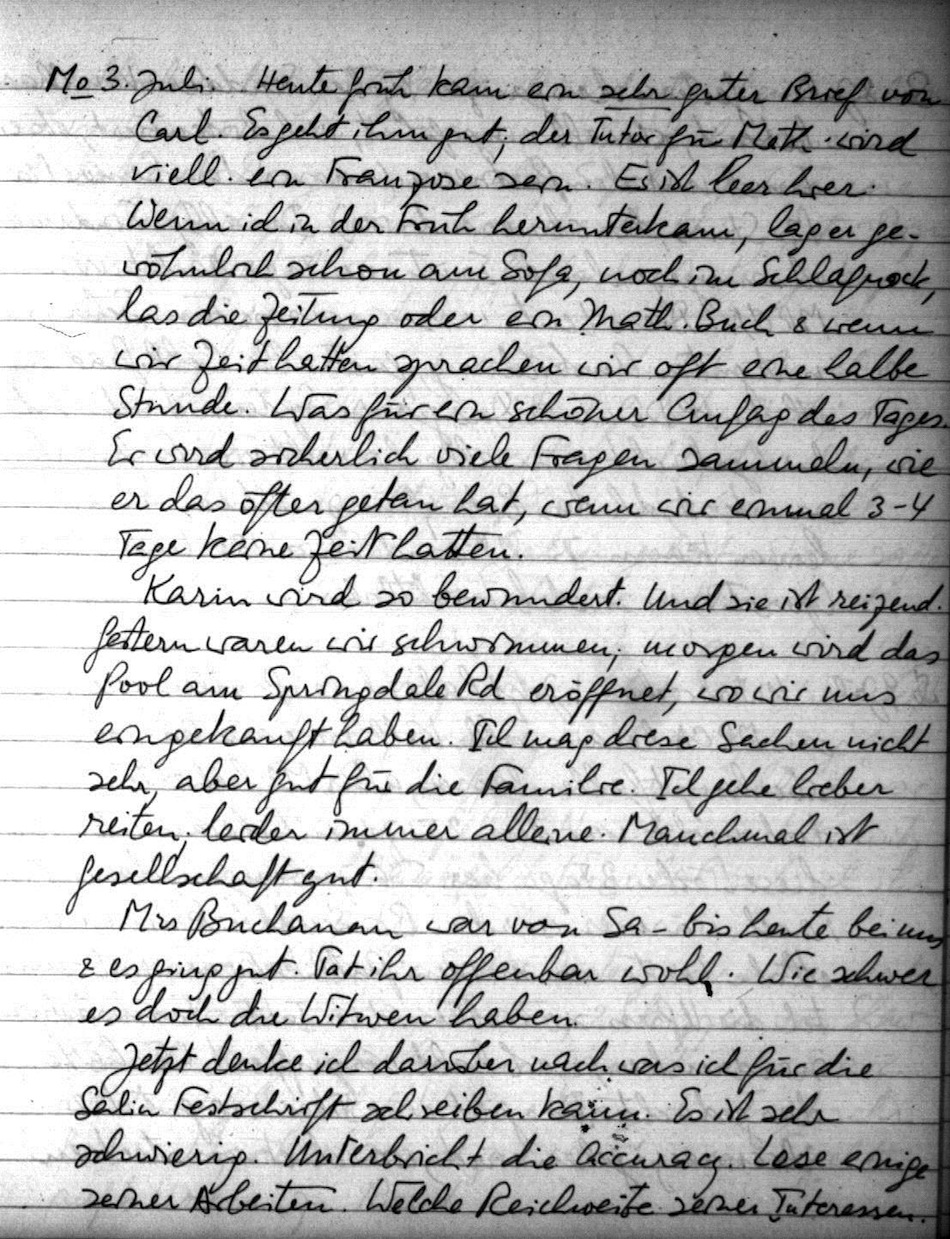 Mo 3. Juli. Heute früh kam ein sehr guter Brief von
Carl. Es geht ihm gut, der Tutor für Math. wird
viell. ein Franzose sein. Es ist leer hier.
Wenn ich in der Früh herunterkam, lag er ge-
wöhnlich schon am Sofa, noch im Schlafrock,
las die Zeitung oder ein Math. Buch & wenn
wir Zeit hatten sprachen wir oft eine halbe
Stunde. Was für ein schöner Anfag des Tages.
Er wird sicherlich viele Fragen sammeln, wie
er das öfter getan hat, wenn wir einmal 3-4
Tage keine Zeit hatten.
Karin wird so bewundert. Und sie ist reizend.
Gestern waren wir schwimmen, morgen wird das
Pool am Springdale Rd eröffnet, wo wir uns
eingekauft haben. Ich mag diese Sachen nicht
sehr, aber gut für die Familie. Ich gehe lieber
reiten, leider immer alleine. Manchmal ist
Gesellschaft gut.
Mrs Buchanan war von Sa - bis heute bei uns
& es ging gut. Tat ihr offenbar wohl. Wie schwer
es doch die Witwen haben.
Jetzt denke ich darüber nach was ich für die
Salin Festschrift schreiben kann. Es ist sehr
schwierig. Unterbricht die Accuracy. Lese einige
seiner Arbeiten. Welche Reichweite seiner Interessen.